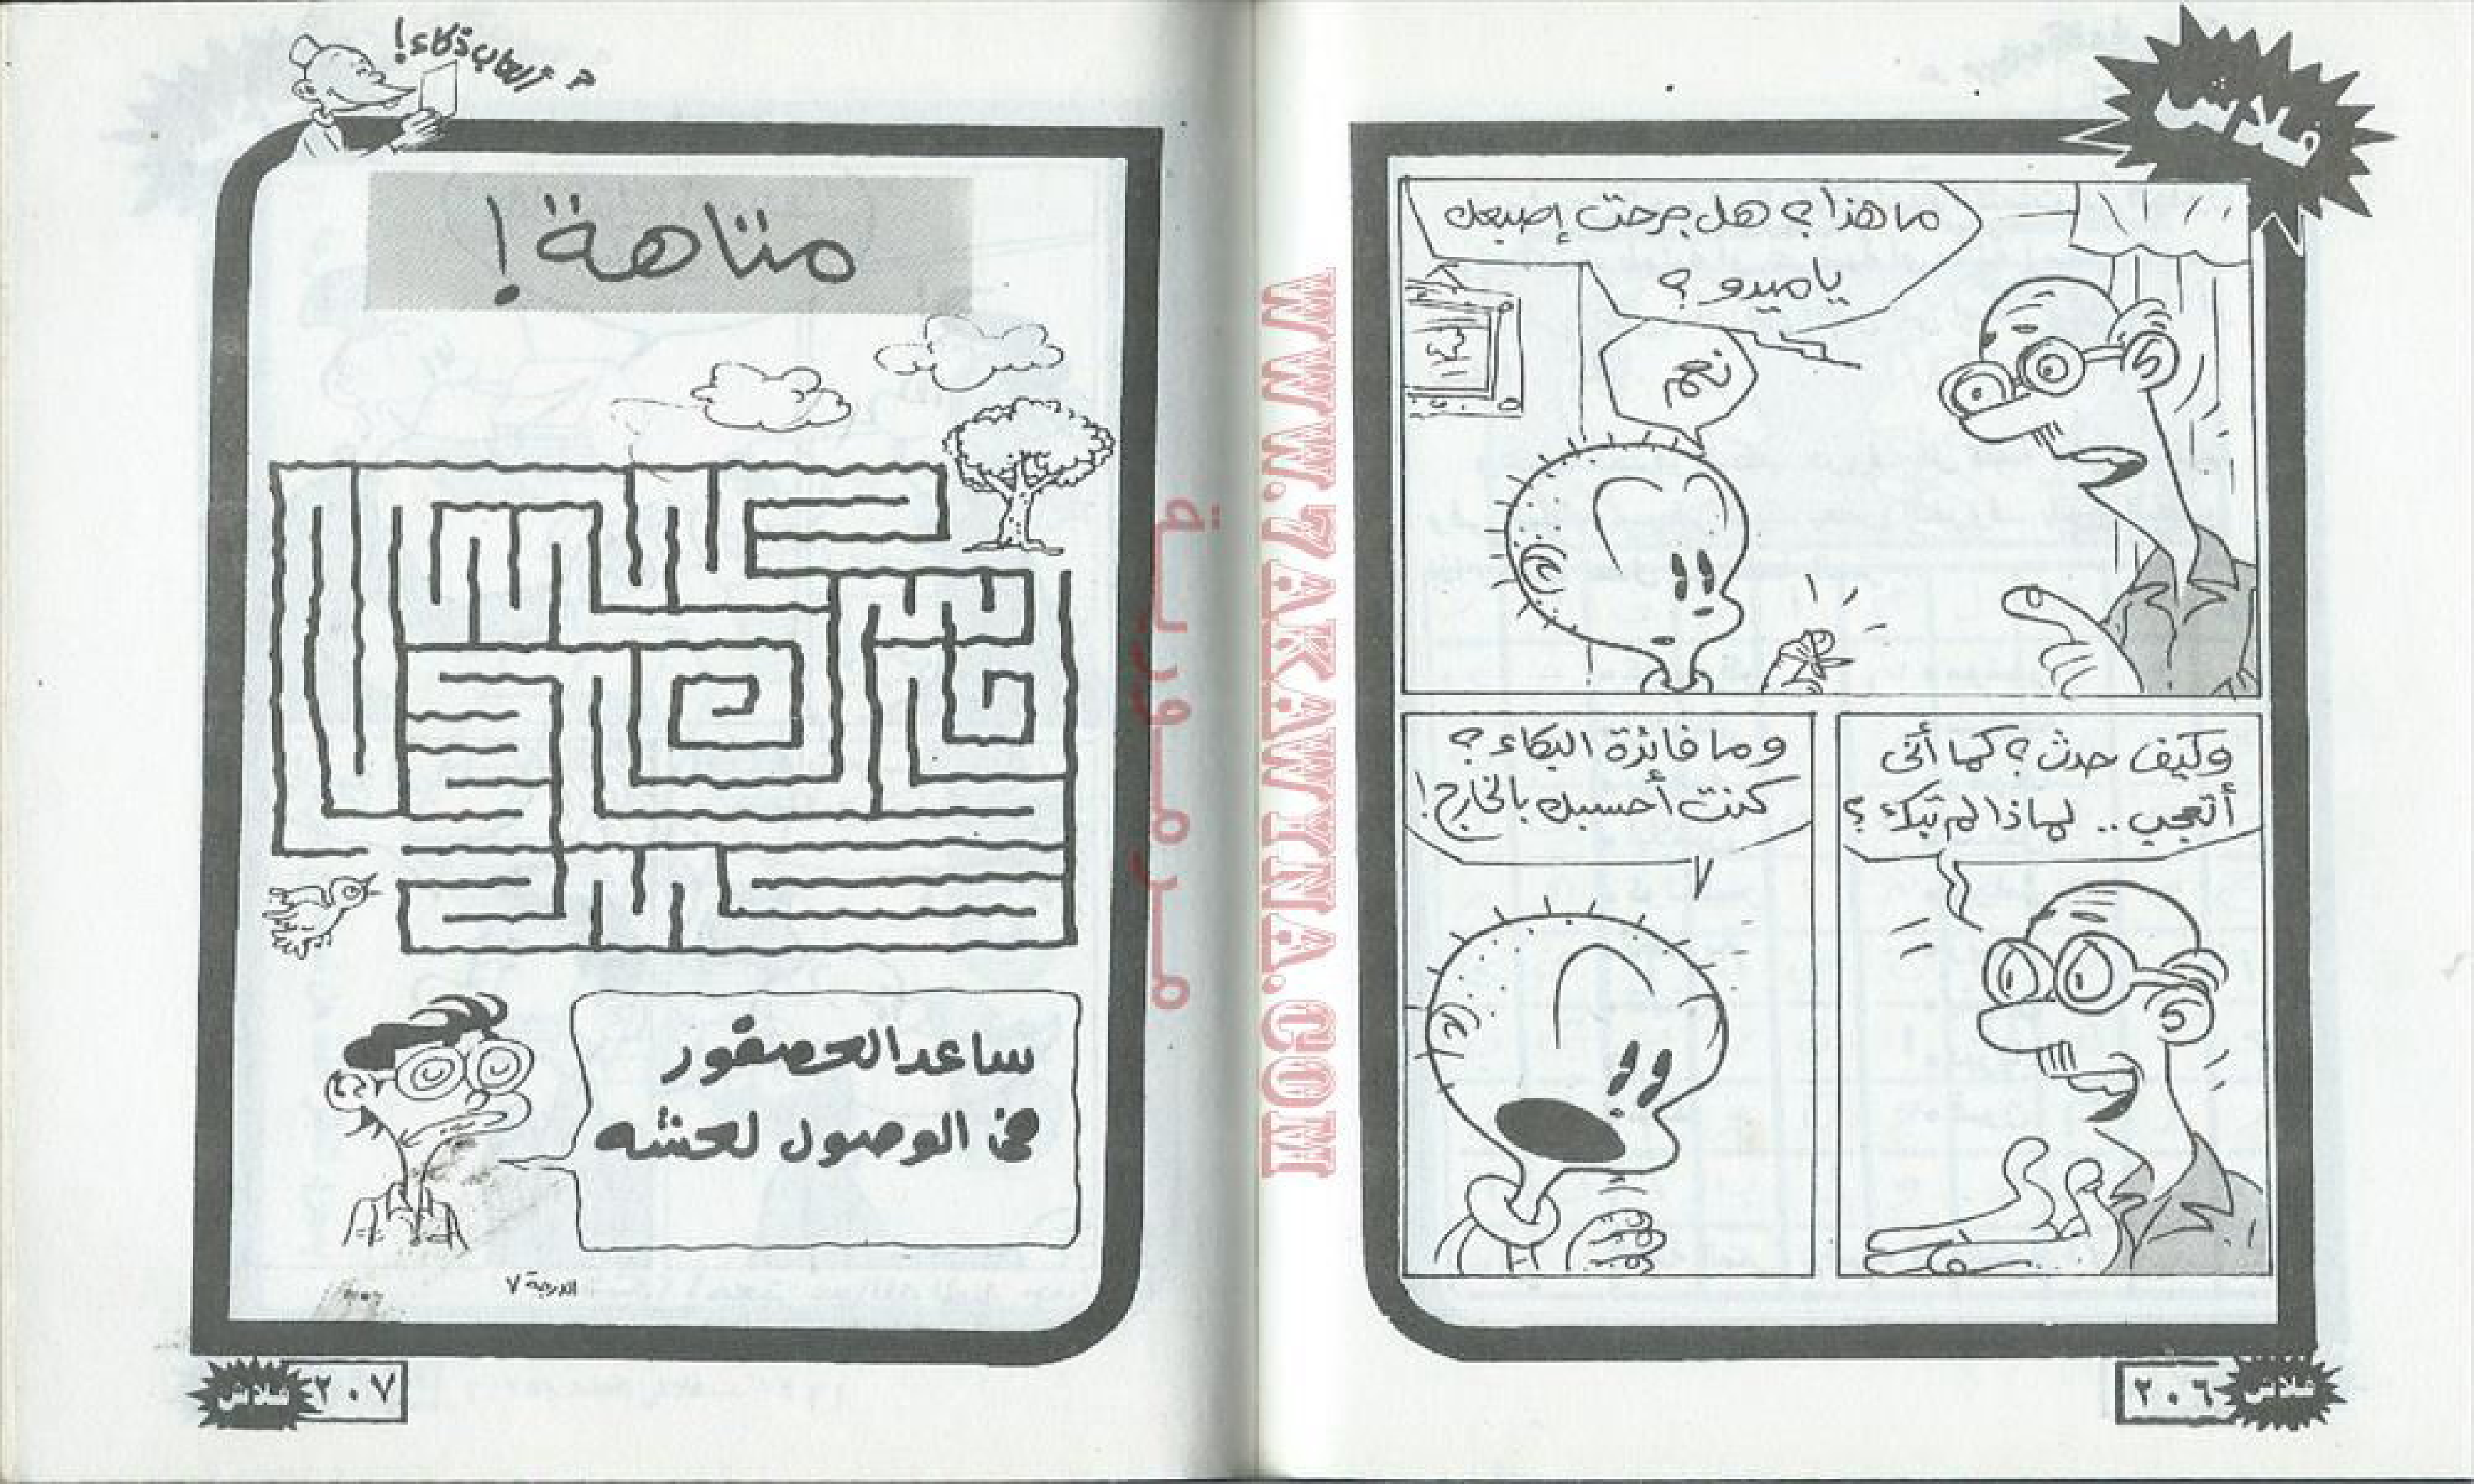 فلاش
ما هذا؟ هل جرحت إصبعك
يا ميدو؟
نعم
وكيف حدث؟ كما أنى
أتعجب .. لماذا لم تبك؟
وما فائدة البكاء؟
كنت أحسبك بالخارج!
٢٠٦
فلاش
WWW.7AKAWINA.COM
متاهة!
ساعد العصفور
فى الوصول لعشه
٢٠٧
فلاش